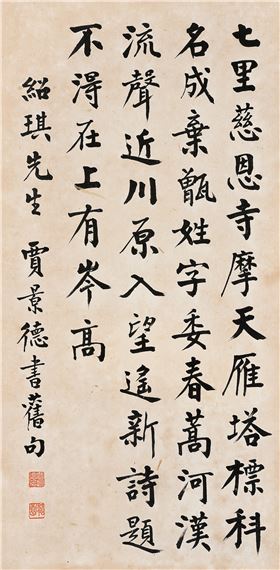 七里慈恩寺摩天雁塔標科
名成棄甑姓字委春蒿河漢
流聲近川原入望遙新詩題
不得在上有岑高
紹琪先生 賈景德書舊句